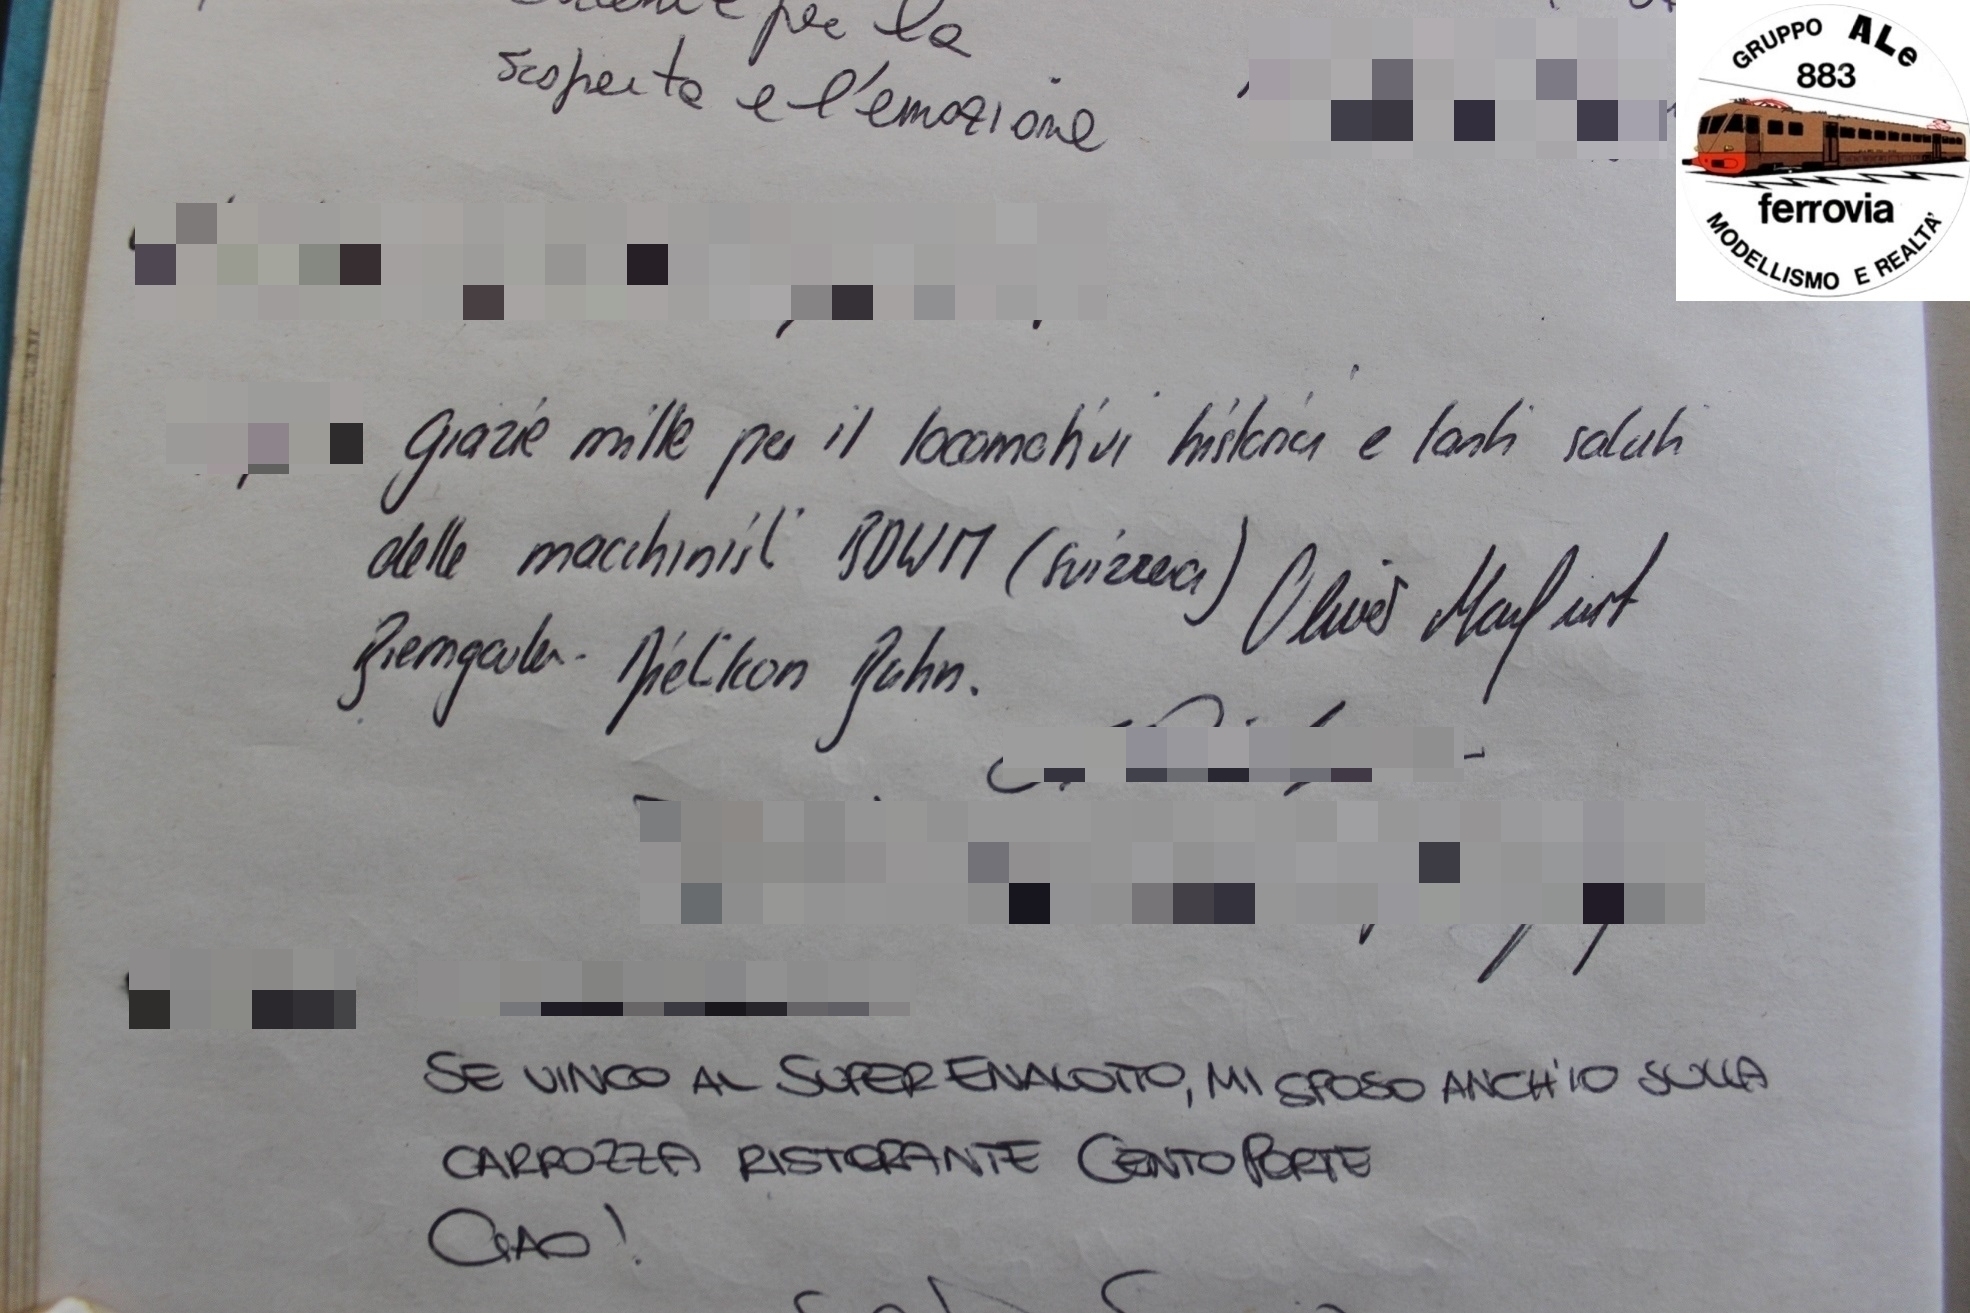 per la
scoperta e l'emozione
GRUPPO ALe
883
ferrovia
MODELLISMO E REALTA'
Grazie mille per il locomotivi historici e tanti saluti
delle macchinisti BDWM (svizzera)
Bremgarten-Dietikon Bahn.
SE VINCO AL SUPERENALOTTO, MI SPOSO ANCH'IO SULLA
CARROZZA RISTORANTE CENTOPORTE
CIAO!